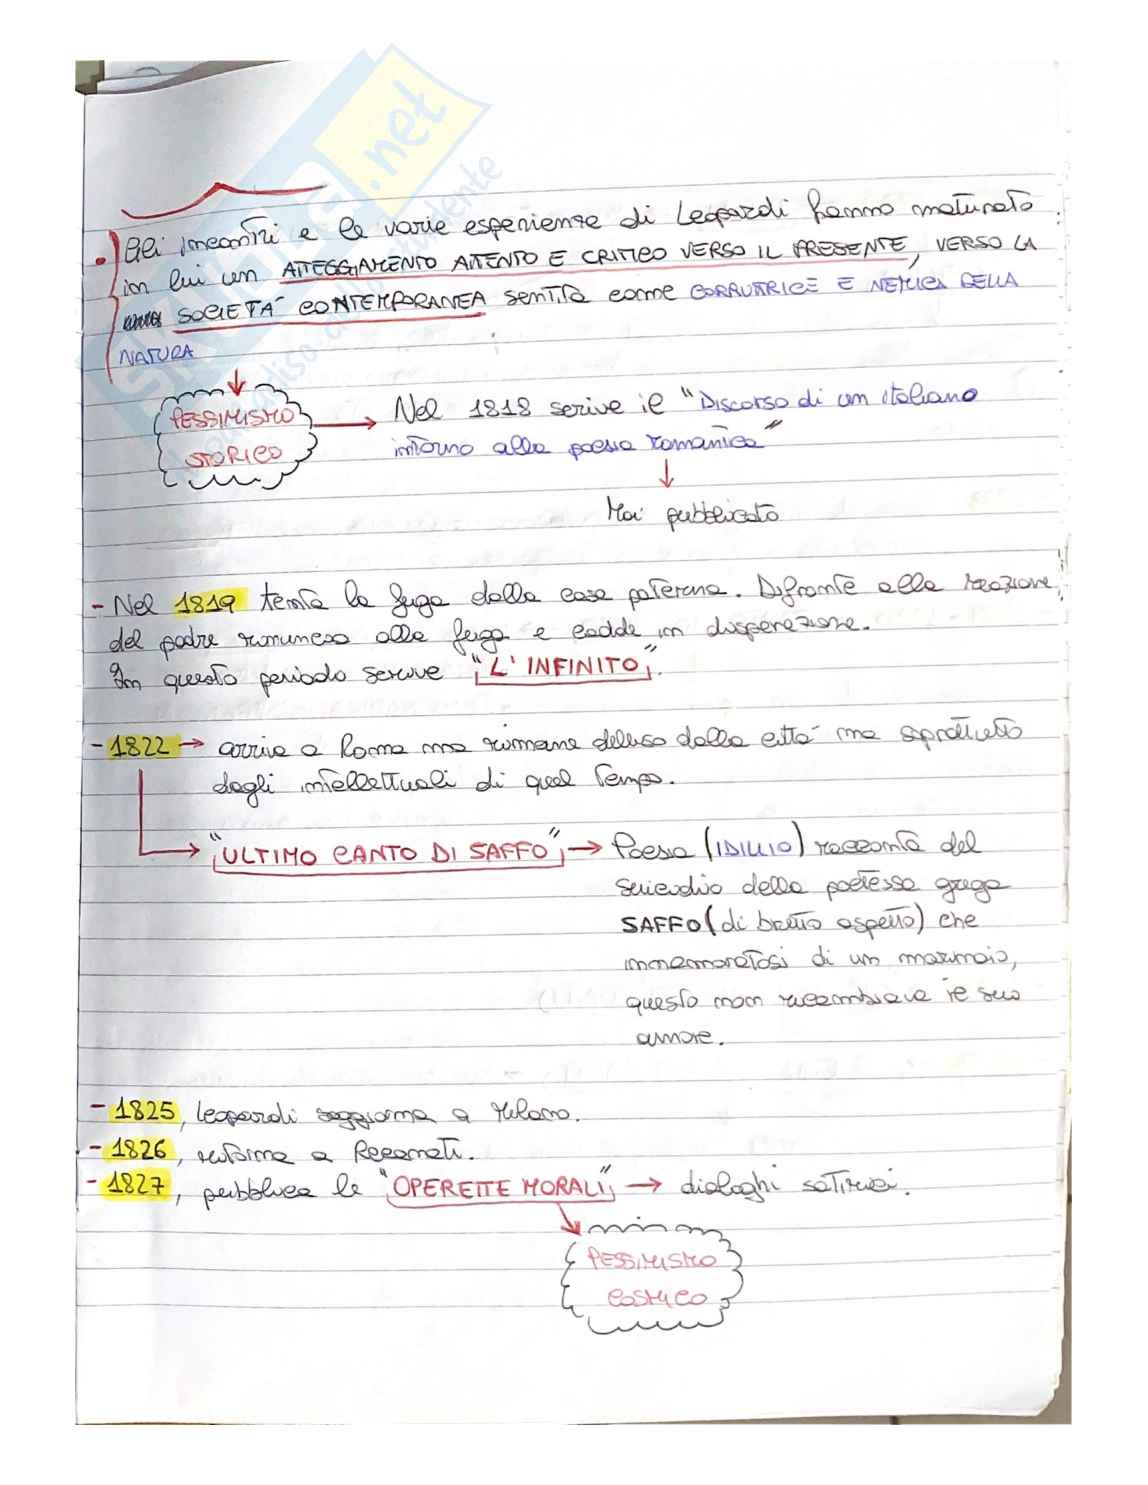 SKUOLA.net
paradiso dello studente
• Gli incontri e le varie esperienze di Leopardi hanno maturato
in lui un ATTEGGIAMENTO ATTENTO E CRITICO VERSO IL PRESENTE, VERSO LA
SOCIETA' CONTEMPORANEA sentita come CORRUTRICE E NEMICA DELLA
NATURA
PESSIMISMO
STORICO
→ Nel 1818 scrive il "Discorso di un italiano
intorno alla poesia romantica"
Mai pubblicato
- Nel 1819 tenta la fuga dalla casa paterna. Difronte alla reazione
del padre rinuncia alla fuga e cadde in disperazione.
In questo periodo scrive "L'INFINITO".
- 1822 → arriva a Roma ma rimane deluso dalla città ma soprattutto
dagli intellettuali di quel tempo.
→ "ULTIMO CANTO DI SAFFO" → Poesia (IDILLIO) racconta del
suicidio della poetessa greca
SAFFO (di brutto aspetto) che
innamoratasi di un marinaio,
questo non ricambiava il suo
amore.
- 1825, Leopardi soggiorna a Milano.
- 1826, ritorna a Recanati.
- 1827, pubblica le "OPERETTE MORALI" → dialoghi satirici.
PESSIMISMO
COSMICO